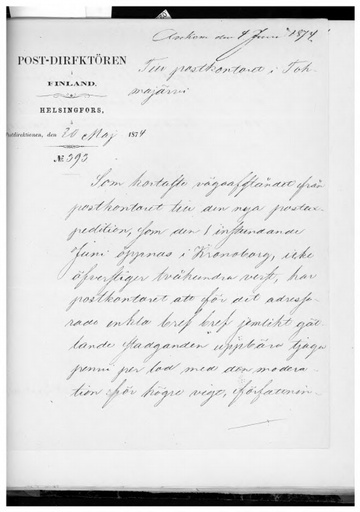 Ankom den 4 Juni 1874.
POST-DIREKTÖREN
i
FINLAND.
HELSINGFORS,
å
Postdirektionen, den 20 Maj 1874
№ 393
Till postkontoret i Toh-
majärvi
Som kortaste vägaafståndet från
postkontoret till den nya postex-
pedition, som den 1 instundande
Juni öppnas i Kronoborg, icke
öfverstiger tvåhundra verst, har
postkontoret att för dit adresse-
rade enkla bref bref jemlikt gäl-
lande stadganden uppbära tjugu
penni per lod med den modera-
tion för högre vigt, författnin-